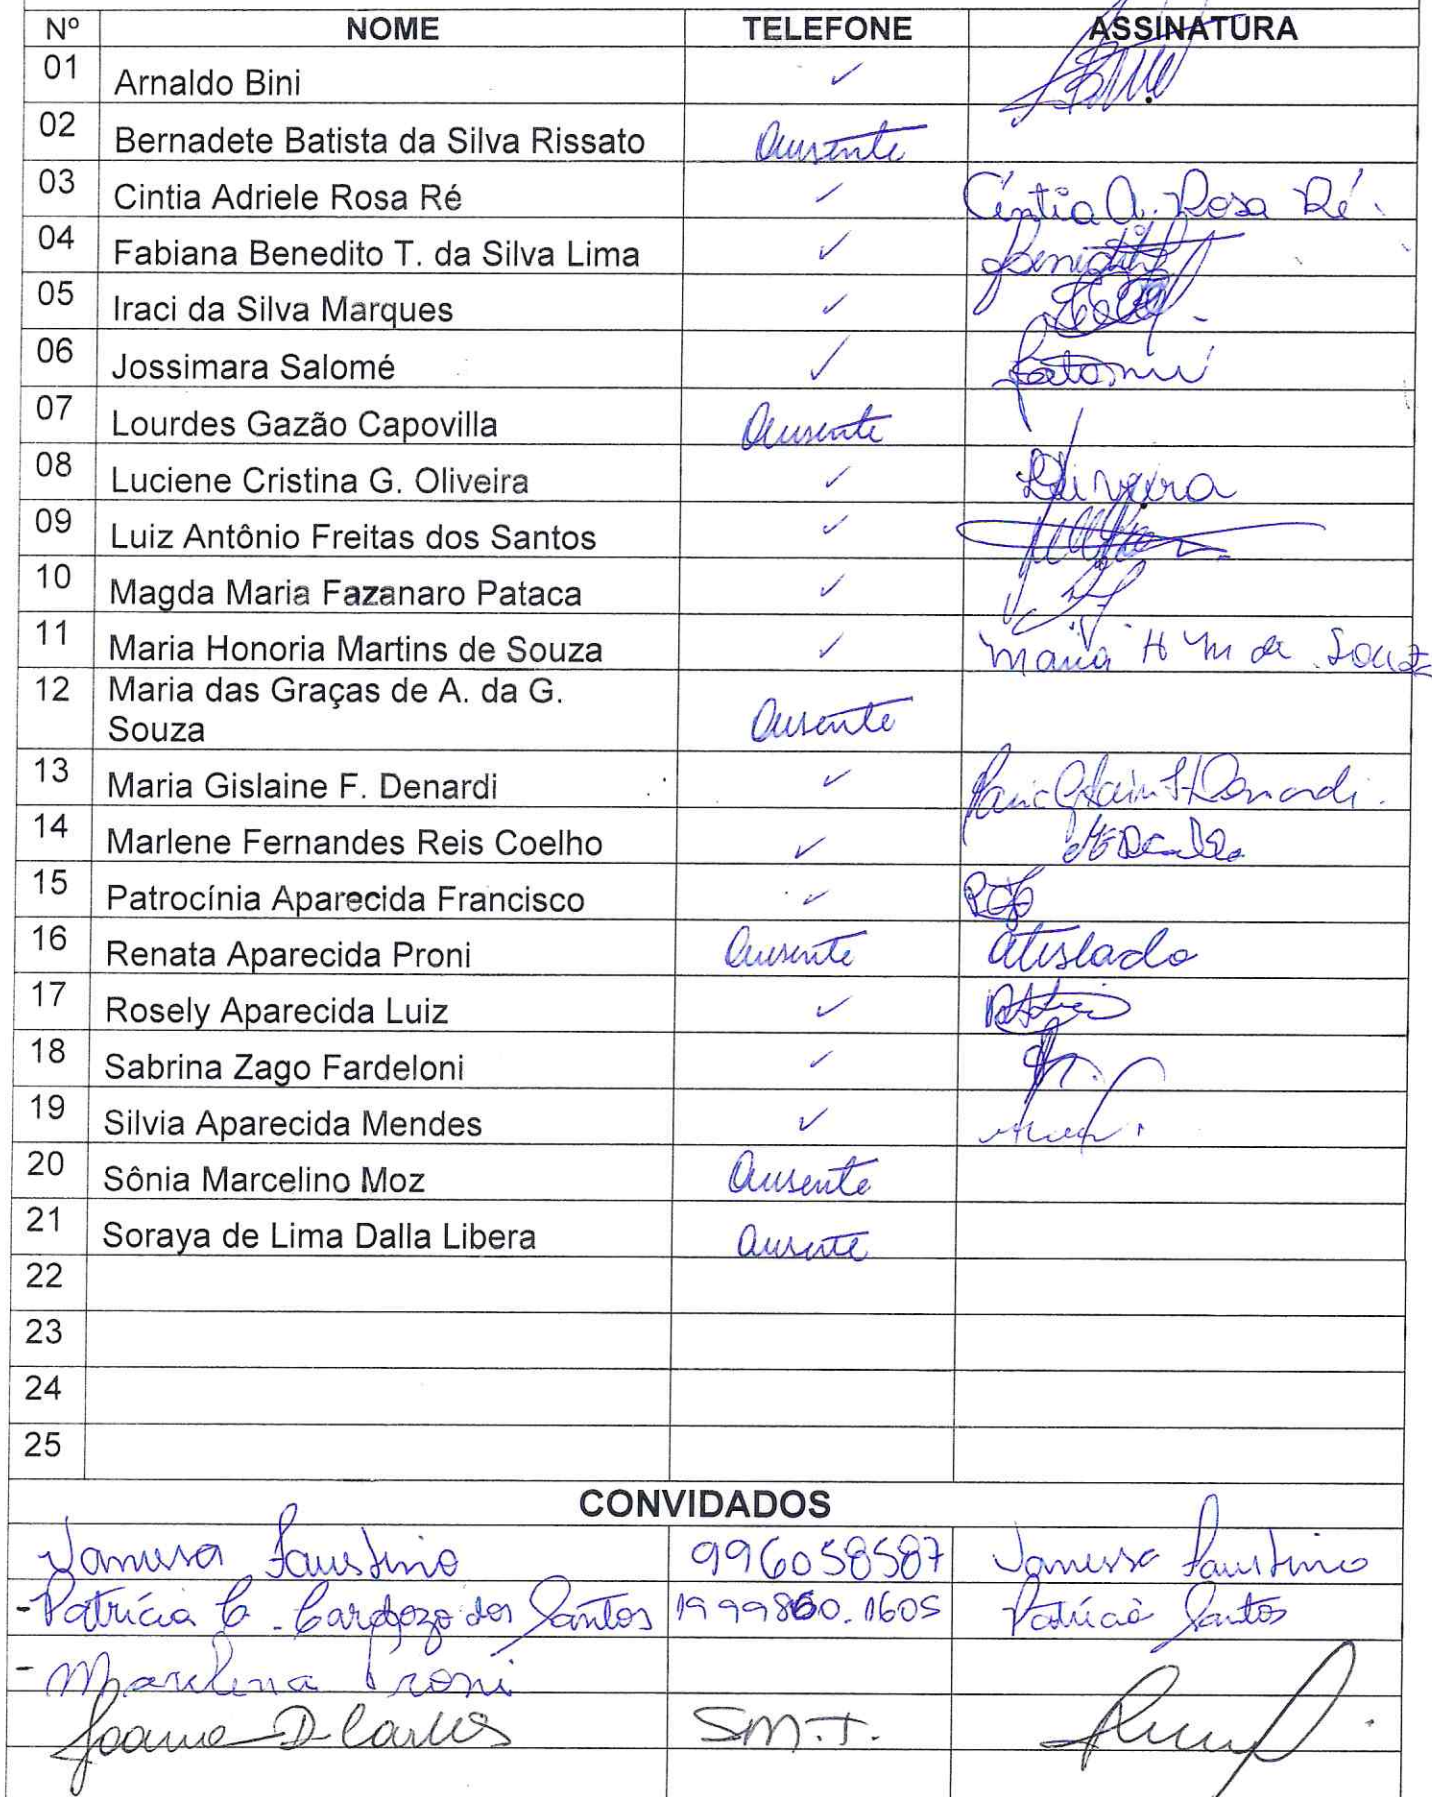 Nº NOME TELEFONE ASSINATURA
01 Arnaldo Bini ✓
02 Bernadete Batista da Silva Rissato Ausente
03 Cintia Adriele Rosa Ré ✓ Cíntia A. Rosa Ré.
04 Fabiana Benedito T. da Silva Lima ✓
05 Iraci da Silva Marques ✓
06 Jossimara Salomé ✓
07 Lourdes Gazão Capovilla Ausente
08 Luciene Cristina G. Oliveira ✓ Oliveira
09 Luiz Antônio Freitas dos Santos ✓
10 Magda Maria Fazanaro Pataca ✓
11 Maria Honoria Martins de Souza ✓ Maria H M de Souza
12 Maria das Graças de A. da G.
Souza Ausente
13 Maria Gislaine F. Denardi ✓ Denardi
14 Marlene Fernandes Reis Coelho ✓
15 Patrocínia Aparecida Francisco ✓
16 Renata Aparecida Proni Ausente
17 Rosely Aparecida Luiz ✓
18 Sabrina Zago Fardeloni ✓
19 Silvia Aparecida Mendes ✓
20 Sônia Marcelino Moz Ausente
21 Soraya de Lima Dalla Libera Ausente
22
23
24
25
CONVIDADOS
Vanessa Faustino 996058587 Vanessa Faustino
- Patrícia C. Cardozo dos Santos Patrícia Santos
- Marilena Proni
Joana D S.M.T.